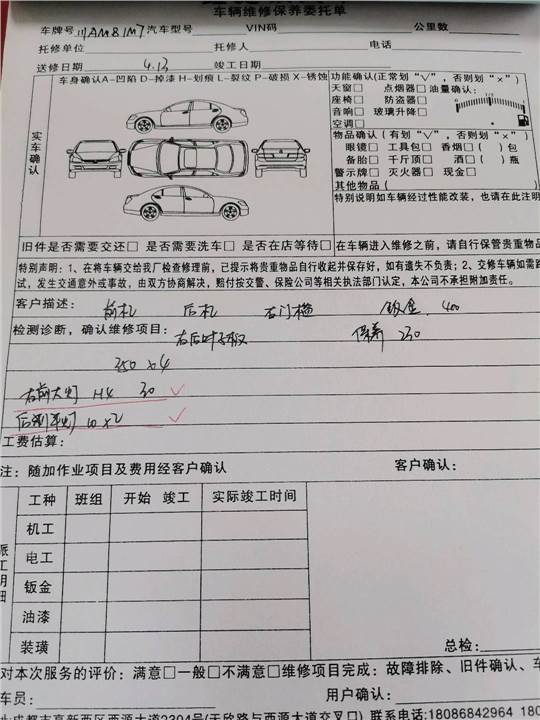 车辆维修保养委托单
车牌号 川AM81M7 汽车型号 VIN码 公里数
托修单位 托修人 电话
送修日期 4.13 竣工日期
实车确认
车身确认A-凹陷 D-掉漆 H-划痕 L-裂纹 P-破损 X-锈蚀
功能确认(正常划“√”,否则划“×”)
天窗□ 点烟器□ 油量确认:
座椅□ 防盗器□
音响□ 玻璃升降□
空调□
物品确认(有划“√”,否则划“×”)
眼镜□ 工具包□ 香烟□( )包
备胎□ 千斤顶□ 酒□( )瓶
警示牌□ 灭火器□ 现金□
其他物品(
特别说明如车辆经过性能改装,也请在此注明
旧件是否需要交还□ 是否需要洗车□ 是否需要在店等待□ 在车辆进入维修之前,请自行保管贵重物品
特别声明:1、在将车辆交给我厂检查修理前,已提示将贵重物品自行收起并保存好,如有遗失不负责;2、交修车辆如需路
试,发生交通意外或事故,由双方协商解决,赔付按交警、保险公司等相关执法部门认定,本公司不承担附加责任。
客户描述: 前杠 后杠 右门槛 钣金 400
检测诊断,确认维修项目: 右后叶子板 保养 230
350×4
右前大灯 H4 30 √
10×2 √
工费估算:
注:随加作业项目及费用经客户确认 客户确认:
派工明细
工种 班组 开始 竣工 实际竣工时间
机工
电工
钣金
油漆
装璜
总检:
对本次服务的评价:满意□一般□不满意□维修项目完成:故障排除、旧件确认、车
车员: 用户确认:
成都市高新西区西源大道2304号(天欣路与西源大道交叉口) 联系电话:18086842964 180